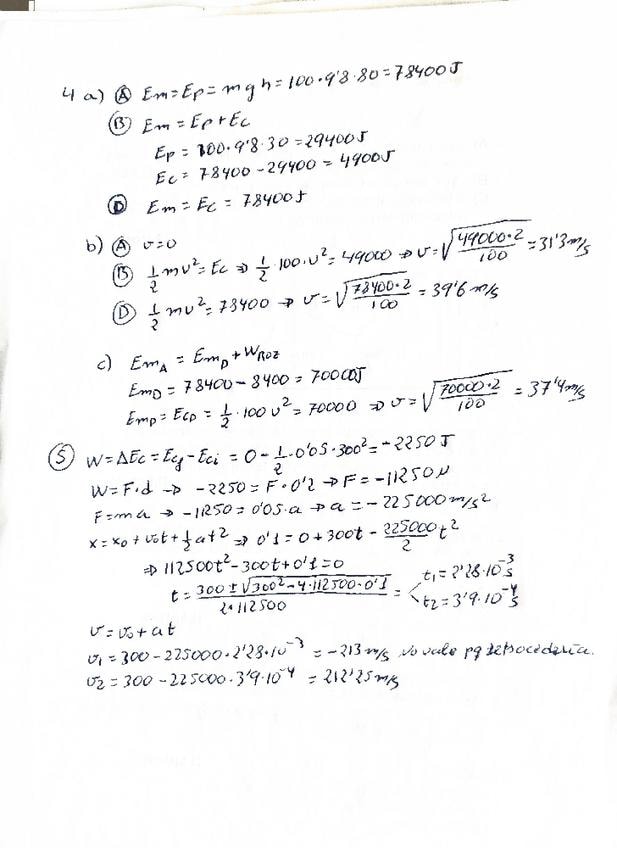 4 a) Ⓐ Em = Ep = m g h = 100 · 9'8 · 80 = 78400 J
Ⓑ Em = Ep + Ec
Ep = 100 · 9'8 · 30 = 29400 J
Ec = 78400 - 29400 = 4900J
Ⓓ Em = Ec = 78400 J
b) Ⓐ v = 0
Ⓑ 1/2 mv² = Ec ⇒ 1/2 · 100 · v² = 49000 ⇒ v = √(49000·2/100) = 31'3 m/s
Ⓓ 1/2 mv² = 78400 ⇒ v = √(78400·2/100) = 39'6 m/s
c) Em_A = Em_D + W_ROZ
Em_D = 78400 - 8400 = 70000J
Em_D = Ec_D = 1/2 · 100 v² = 70000 ⇒ v = √(70000·2/100) = 37'4 m/s
⑤ W = ΔEc = Ecf - Eci = 0 - 1/2 · 0'05 · 300² = -2250 J
W = F·d → -2250 = F · 0'2 → F = -11250 N
F = m a → -11250 = 0'05 · a → a = -225000 m/s²
x = x₀ + v₀t + 1/2 at² ⇒ 0'1 = 0 + 300t - 225000/2 t²
⇒ 112500t² - 300t + 0'1 = 0
t = (300 ± √(300² - 4·112500·0'1))/(2·112500) = < t₁ = 2'28·10⁻³ s
t₂ = 3'9·10⁻⁴ s
v = v₀ + at
v₁ = 300 - 225000 · 2'28·10⁻³ = -213 m/s No vale pq retrocedería.
v₂ = 300 - 225000 · 3'9·10⁻⁴ = 212'25 m/s